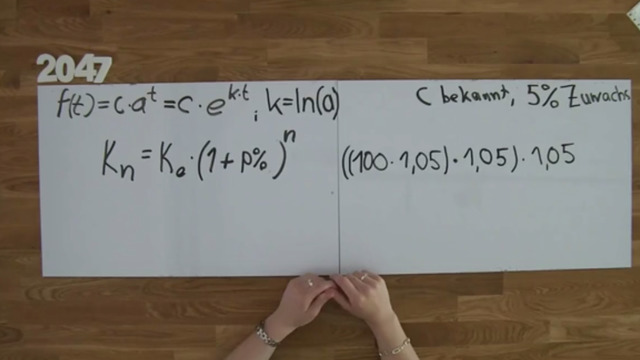 2047
f(t)=c·a^t=c·e^{k·t}; k=ln(a)
C bekannt, 5% Zuwachs
K_n=K_0·(1+p%)^n
((100·1,05)·1,05)·1,05